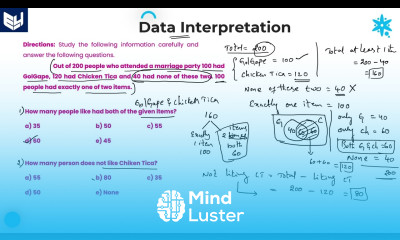 Data Interpretation
Directions: Study the following information carefully and
answer the following questions.
Out of 200 people who attended a marriage party 100 had
GolGape, 120 had Chicken Tica and 40 had none of these two 100
people had exactly one of two items.
1) How many people like had both of the given items?
a) 35 b) 50 c) 55
d) 60 e) 45
2) How many person does not like Chiken Tica?
a) 55 b) 80 c) 35
d) 50 e) None
Total = 200
GolGape = 100
Chicken Tica = 120
None of these two = 40 X
Exactly one item = 100
Total at least 1
= 200 - 40
= 160
GolGape & Chicken Tica
160
Exactly
1 item
100
items
both
60
G
40 60 60
60+60 = 120
only G = 40
only ch = 60
Both G & ch = 60
None = 40
200
Not liking CT = Total - liking CT
= 200 - 120 = 80
Mind
Luster